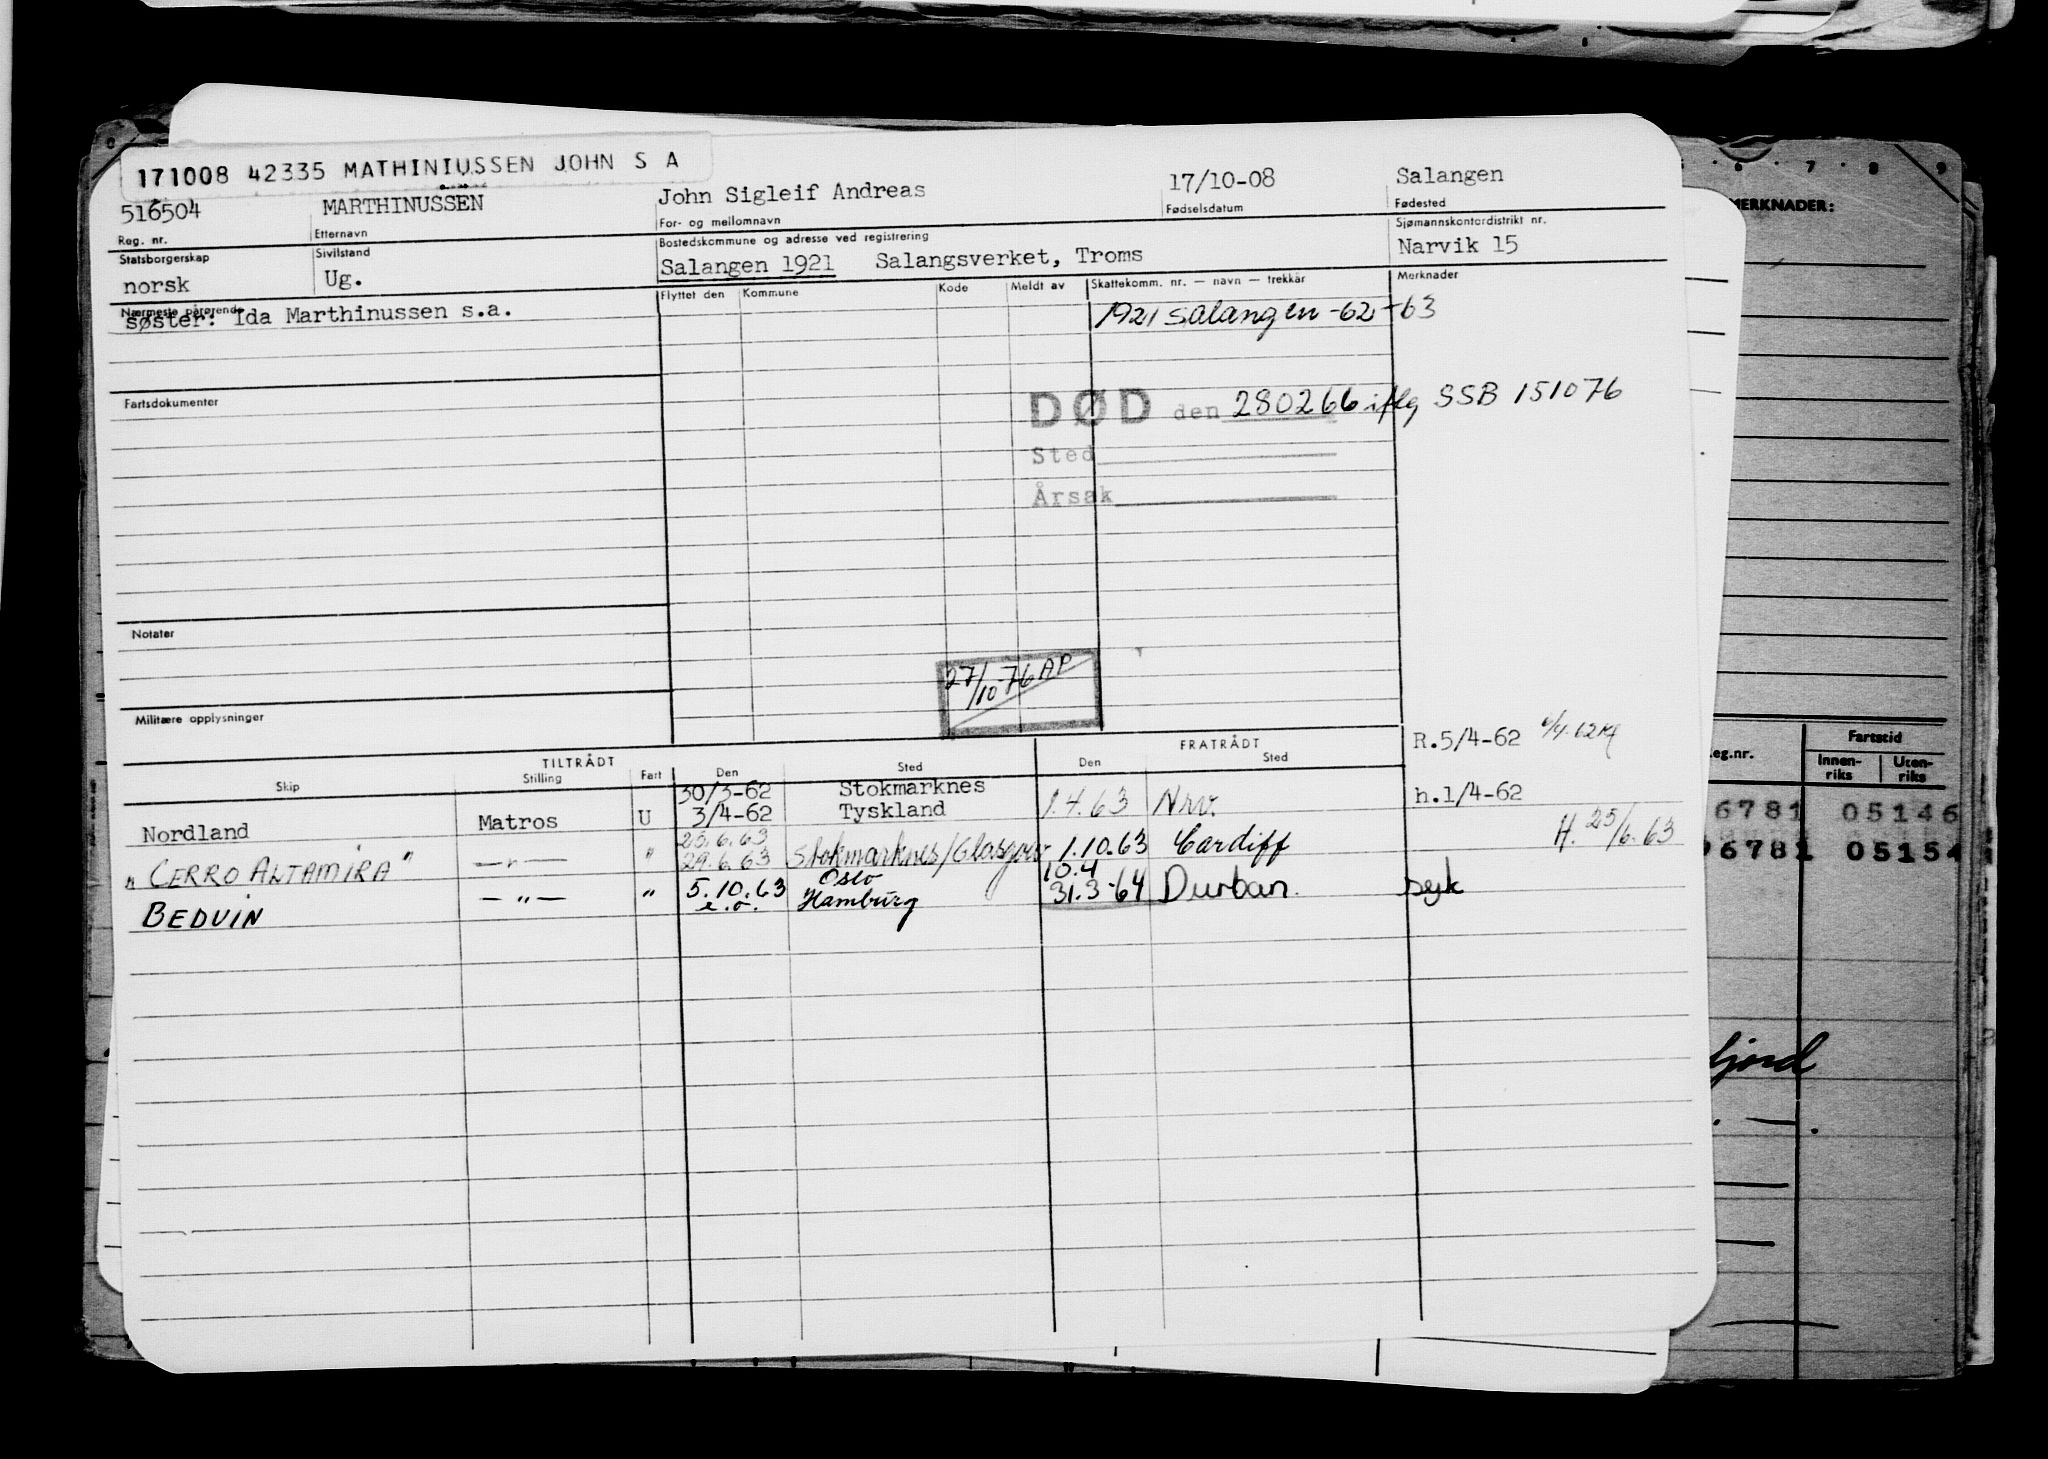 171008 42335 MATHINIUSSEN JOHN S A
516504 MARTHINUSSEN John Sigleif Andreas 17/10-08 Salangen
Reg. nr. Etternavn For- og mellomnavn Fødselsdatum Fødested
Statsborgerskap Sivilstand Bostedskommune og adresse ved registrering Sjømannskontordistrikt nr.
norsk Ug. Salangen 1921 Salangsverket, Troms Narvik 15
Nærmeste pårørende Flyttet den Kommune Kode Meldt av Skattekomm. nr. — navn — trekkår Merknader
søster: Ida Marthinussen s.a. 1921 Salangen -62-63
Fartsdokumenter
DØD den 280266 iflg SSB 151076
Sted
Årsak
Notater
27/10-76 AP
Militære opplysninger
TILTRÅDT FRATRÅDT R.5/4-62
Skip Stilling Fart Den Sted Den Sted
30/3-62 Stokmarknes h.1/4-62
Nordland Matros U 3/4-62 Tyskland 1.4.63 Nrv.
25.6.63 H. 25/6.63
"CERRO ALTAMIRA" —"— " 29.6.63 Stokmarknes/Glasgow 1.10.63 Cardiff
Oslo 10.4
BEDUIN —"— " 5.10.63 Hamburg 31.3-64 Durban. syk
e.o.
6 7 8 9
MERKNADER:
eg.nr. Fartstid
Innen-riks Uten-riks
6781 05146
96781 05154
fjord